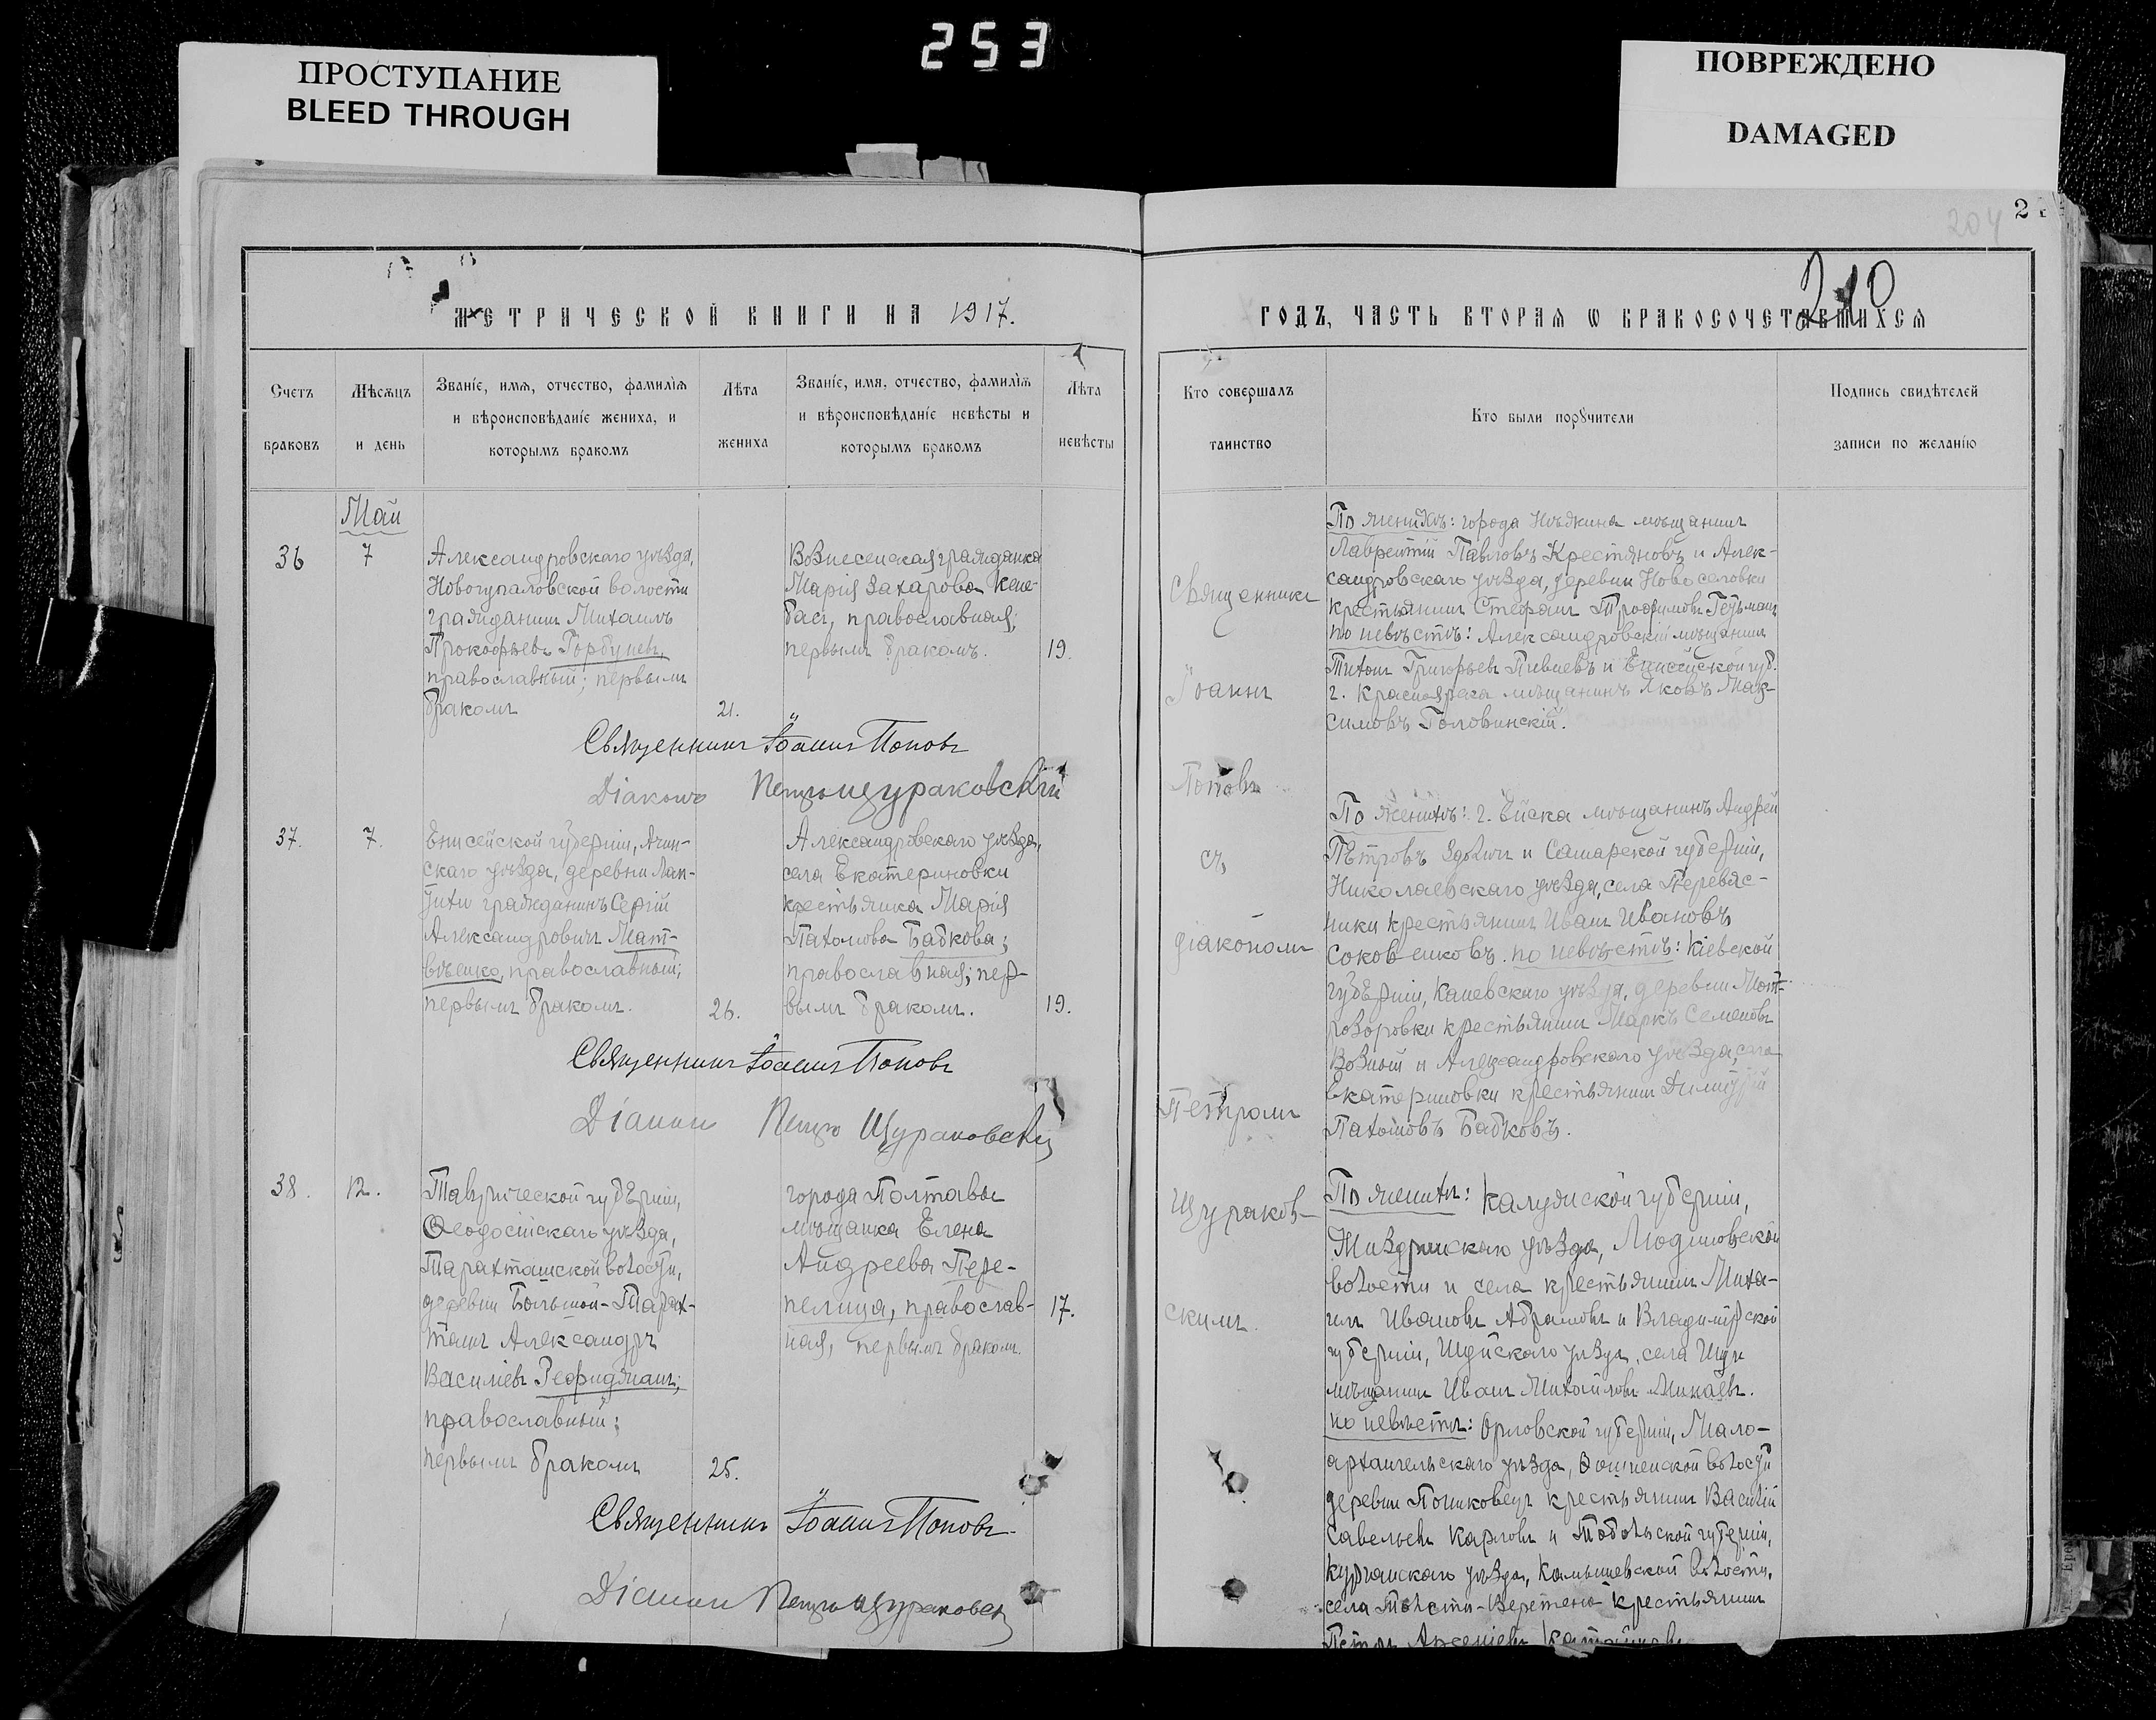 253
ПРОСТУПАНИЕ
BLEED THROUGH
ПОВРЕЖДЕНО
DAMAGED
204
2
210
МЕТРИЧЕСКОЙ КНИГИ НА 1917.
Счетъ
браковъ
Мѣсяцъ
и день
Званіе, имя, отчество, фамилія
и вѣроисповѣданіе жениха, и
которымъ бракомъ
Лѣта
жениха
Званіе, имя, отчество, фамилія
и вѣроисповѣданіе невѣсты и
которымъ бракомъ
Лѣта
невѣсты
Май
36
7
Александровскаго уѣзда,
Новогупаловской волости
гражданинъ Михаилъ
Прокофьевъ Горбуневъ,
православный; первымъ
бракомъ
21.
Вознесенская гражданка
Марія Захарова Кене-
басъ, православная;
первымъ бракомъ.
19.
Священникъ Іоаннъ Поповъ
Діаконъ Петръ Щураковскій
37.
7.
Енисейской губерніи, Ачин-
скаго уѣзда, деревни Лап-
гражданинъ Сергій
Александровичъ Мат-
вѣенко, православный;
первымъ бракомъ.
26.
Александровскаго уѣзда,
села Екатериновки
крестьянка Марія
Пахомова Бабкова;
православная; пер-
вымъ бракомъ.
19.
Священникъ Іоаннъ Поповъ
Діаконъ Петръ Щураковскій
38.
12.
Таврической губерніи,
Ѳеодосійскаго уѣзда,
Таракташской волости,
деревни Большой-Тарак-
ташъ Александръ
Василіевъ
православный;
первымъ бракомъ
25.
города Полтавы
мѣщанка Елена
Андреева Пере-
пелица, православ-
ная, первымъ бракомъ.
17.
Священникъ Іоаннъ Поповъ
Діаконъ Петръ Щураковскій
ГОДЪ, ЧАСТЬ ВТОРАЯ Ѡ БРАКОСОЧЕТАВШИХСЯ
Кто совершалъ
таинство
Кто были порꙋчители
Подпись свидѣтелей
записи по желанію
Священникъ
Іоаннъ
Поповъ
съ
діакономъ
Петромъ
Щураков-
скимъ.
По женихѣ: города Нѣжина мѣщанинъ
Лаврентій Павловъ Крестяновъ и Алек-
сандровскаго уѣзда, деревни Новоселовки
крестьянинъ Стефанъ Трофимовъ Гетьманъ
по невѣстѣ: Александровскій мѣщанинъ
Титъ Григорьевъ Пивневъ и Енисейской губ.
г. Красноярска мѣщанинъ Яковъ Мак-
симовъ Головинскій.
По женихѣ: г. Ейска мѣщанинъ Андрей
Петровъ и Самарской губерніи,
Николаевскаго уѣзда, села Перевяс-
ники крестьянинъ Иванъ Ивановъ
по невѣстѣ: Кіевской
губерніи, Каневскаго уѣзда, деревни
крестьянинъ Маркъ Семеновъ
Возный и Александровскаго уѣзда, села
Екатериновки крестьянинъ Димитрій
Пахомовъ Бабковъ.
По женихѣ: Калужской губерніи,
Жиздринскаго уѣзда, Людиновской
волости и села крестьянинъ Миха-
илъ Ивановъ Абрамовъ и Владимірской
губерніи, Шуйскаго уѣзда, села Шуи
мѣщанинъ Иванъ Михайловъ Минаевъ.
по невѣстѣ: Орловской губерніи, Мало-
архангельскаго уѣзда, волости
деревни крестьянинъ Василій
Савельевъ Карповъ и Тобольской губерніи,
Курганскаго уѣзда, Камышевской волости,
села крестьянинъ
Петръ Арсеніевъ